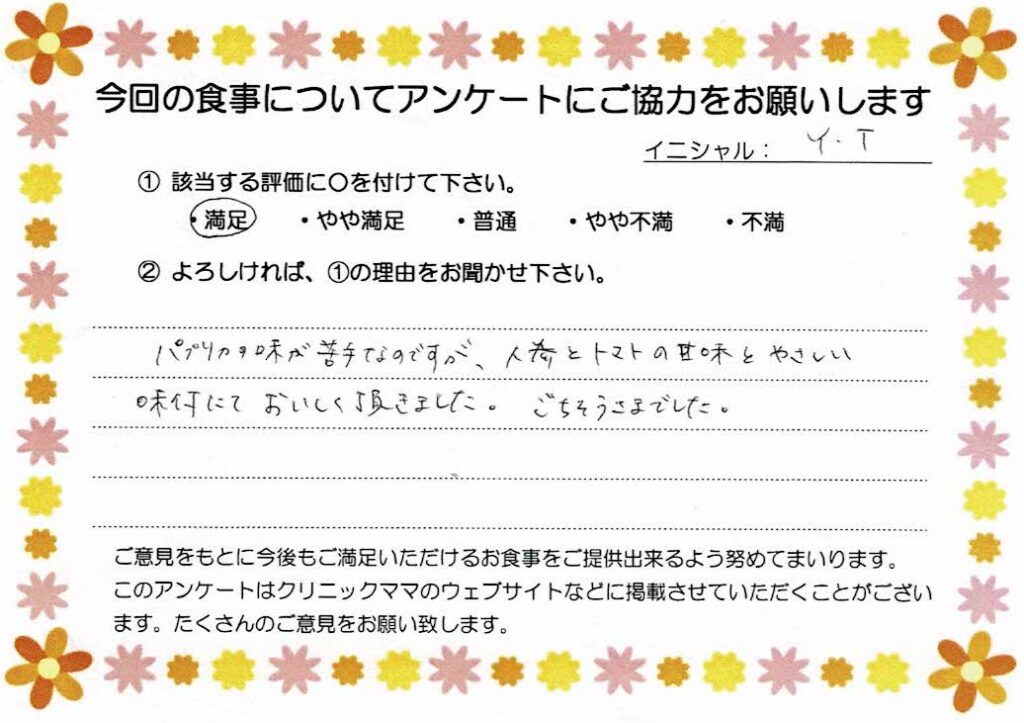 今回の食事についてアンケートにご協力をお願いします
イニシャル： Y.T
① 該当する評価に〇を付けて下さい。
・満足 ・やや満足 ・普通 ・やや不満 ・不満
② よろしければ、①の理由をお聞かせ下さい。
パプリカの味が苦手なのですが、人参とトマトの甘味とやさしい
味付にておいしく頂きました。ごちそうさまでした。
ご意見をもとに今後もご満足いただけるお食事をご提供出来るよう努めてまいります。
このアンケートはクリニックママのウェブサイトなどに掲載させていただくことがござい
ます。たくさんのご意見をお願い致します。